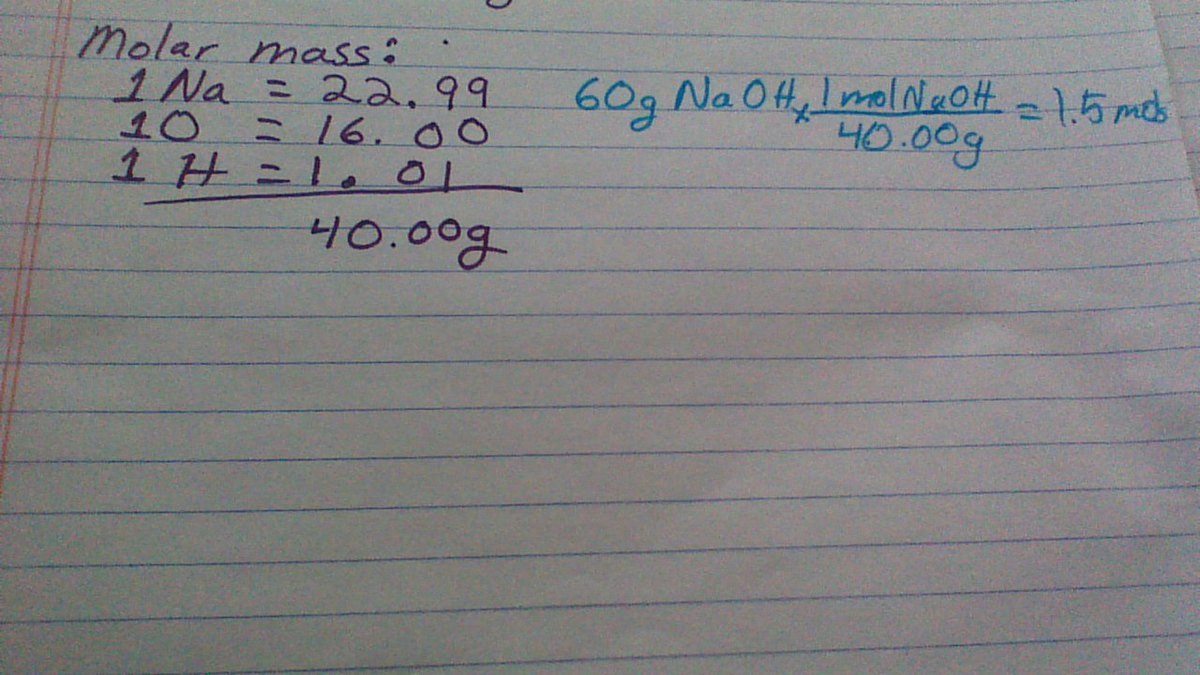 Molar mass:
1 Na = 22.99
1 O = 16.00
1 H = 1.01
40.00g
60g NaOH x 1 mol NaOH = 1.5 mols
40.00g